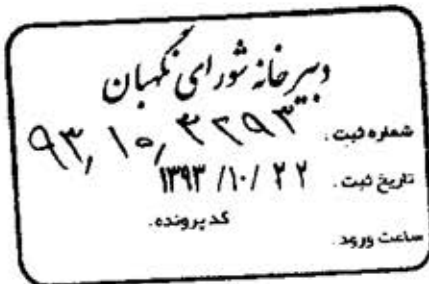 دبیرخانه شورای نگهبان
شماره ثبت. ۹۳,۱۰,۳۲۹۳
تاریخ ثبت. ۱۳۹۳/۱۰/۲۲
کد پرونده.
ساعت ورود.